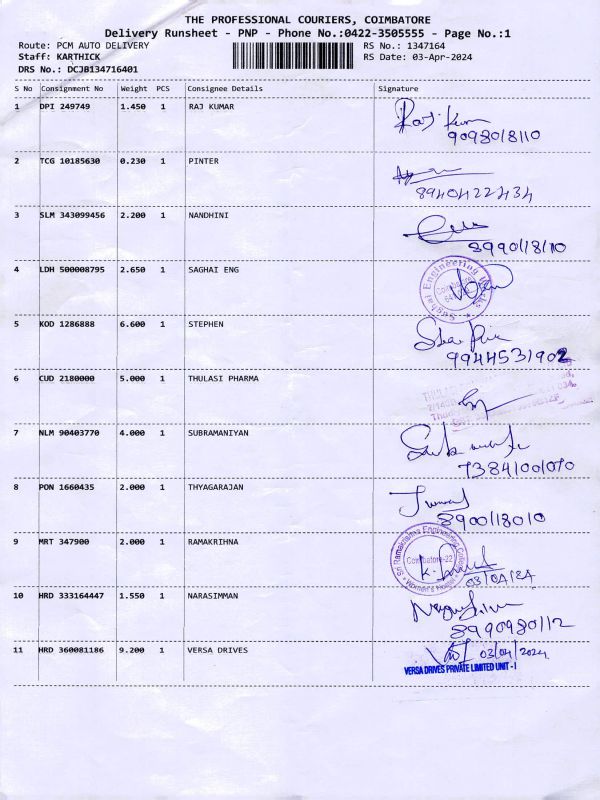 THE PROFESSIONAL COURIERS, COIMBATORE
Delivery Runsheet - PNP - Phone No.:0422-3505555 - Page No.:1
Route: PCM AUTO DELIVERY RS No.: 1347164
Staff: KARTHICK RS Date: 03-Apr-2024
DRS No.: DCJB134716401
S No Consignment No Weight PCS Consignee Details Signature
1 DPI 249749 1.450 1 RAJ KUMAR Raj Kum
9098018110
2 TCG 10185630 0.230 1 PINTER
8940422434
3 SLM 343099456 2.200 1 NANDHINI
8990118110
4 LDH 500008795 2.650 1 SAGHAI ENG
Saghai Engineering Works
5 KOD 1286888 6.600 1 STEPHEN
9944531902
6 CUD 2180000 5.000 1 THULASI PHARMA
7 NLM 90403770 4.000 1 SUBRAMANIYAN
7384100100
8 PON 1660435 2.000 1 THYAGARAJAN
8900118010
9 MRT 347900 2.000 1 RAMAKRIHNA
Sri Ramakrishna Engineering College
Coimbatore-22
Women's Hostel
03/04/24
10 HRD 333164447 1.550 1 NARASIMMAN
8990980112
11 HRD 360081186 9.200 1 VERSA DRIVES
03/04/2024
VERSA DRIVES PRIVATE LIMITED UNIT - I